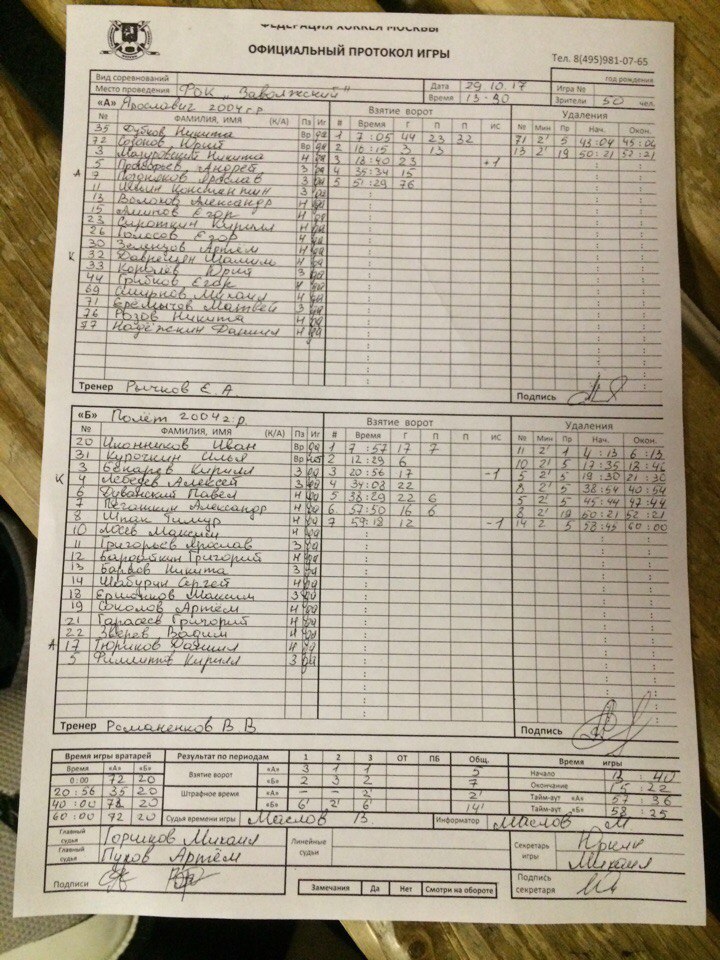 ФЕДЕРАЦИЯ ХОККЕЯ МОСКВЫ
ОФИЦИАЛЬНЫЙ ПРОТОКОЛ ИГРЫ
Тел. 8(495)981-07-65
Вид соревнований год рождения
Место проведения ФОК "Заволжский" Дата 29.10.17 Игра №
Время 13-30 Зрители 50 чел.
«А» Ярославич 2004 г.р. Взятие ворот Удаления
№ ФАМИЛИЯ, ИМЯ (К/А) Пз Иг # Время Г П П ИС № Мин Пр Нач. Окон.
35 Зубков Никита Вр да 1 7:05 44 23 32 71 2' 5 43:04 45:04
72 Созонов Юрий Вр да 2 16:15 3 13 13 2' 19 50:21 52:21
3 Никита Н да 3 18:40 23 +1
5 Андрей З да 4 35:34 15
А 7 Ярослав З да 5 51:29 76
11 Шилин Константин З да
13 Волохов Александр Н да
15 Егор Н да
23 Сироткин Кирилл Н да
26 Голосов Егор Н да
30 Зеленцов Артём Н да
К 32 Шамиль Н да
33 Королев Юрий З да
44 Грибков Егор Н да
69 Смирнов Михаил Н да
71 Матвей З да
76 Розов Никита Н да
77 Надёжкин Даниил Н да
Тренер Рычков Е.А. Подпись
«Б» Полёт 2004 г.р. Взятие ворот Удаления
№ ФАМИЛИЯ, ИМЯ (К/А) Пз Иг # Время Г П П ИС № Мин Пр Нач. Окон.
20 Иконников Иван Вр да 1 7:57 17 7 11 2' 1 4:13 6:13
31 Курочкин Илья Вр нет 2 12:29 6 10 2' 5 17:35 18:46
3 Бекарев Кирилл З да 3 20:56 17 -1 5 2' 5 19:30 21:30
К 4 Лебедев Алексей З да 4 34:08 22 8 2' 5 38:54 40:54
6 Дуванский Павел Н да 5 38:29 22 6 5 2' 5 45:44 47:44
7 Александр Н да 6 57:50 16 6 8 2' 19 50:21 52:21
8 Шпак Тимур Н да 7 59:18 12 -1 14 2 5 58:45 60:00
10 Лосев Максим Н да
11 Григорьев Ярослав З да
12 Григорий Н да
13 Никита З да
14 Шабурин Сергей Н да
18 Ермаков Максим З да
19 Соколов Артём Н да
21 Тарасов Григорий Н да
22 Зверев Вадим Н да
А 17 Тюриков Даниил Н да
5 Кирилл З да
Тренер Романенков В.В. Подпись
Время игры вратарей Результат по периодам 1 2 3 ОТ ПБ Общ. Время игры
Время «А» «Б» Взятие ворот «А» 3 1 1 5 Начало 13:40
0:00 72 20 «Б» 2 3 2 7 Окончание 15:22
20:56 35 20 Штрафное время «А» – – 2' 2' Тайм-аут «А» 57:36
40:00 72 20 «Б» 6' 2' 6' 14' Тайм-аут «Б» 58:25
60:00 72 20 Судья времени игры Маслов В. Информатор Маслов М
Главный судья Горшков Михаил Линейные судьи Секретарь игры
Главный судья Пухов Артём Михаил
Подписи Замечания Да Нет Смотри на обороте Подпись секретаря